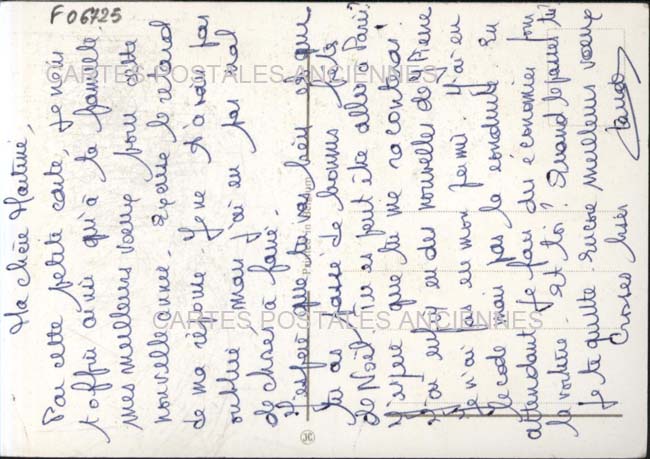 F06725
Ma chère Martine,
Par cette petite carte, je viens
t'offrir ainsi qu'à ta famille
mes meilleurs voeux pour cette
nouvelle année. Excuse le retard
de ma réponse. Je ne t'avais pas
oublié mais j'ai eu pas mal
de choses à faire.
J'espère que tu vas bien et que
tu as passé de bonnes fêtes
de Noël. Tu as peut être allée à Paris?
J'espère que tu me raconteras
J'ai eu des nouvelles de Pierre
Je n'ai pas eu mon permis. J'ai eu
le code mais pas la conduite. En
attendant je fais des économies pour
la voiture. Et toi? Quand le passes tu?
Je te quitte. Encore meilleurs voeux
Grosses bises
CARTES POSTALES ANCIENNES
CARTES POSTALES ANCIENNES
Printed in